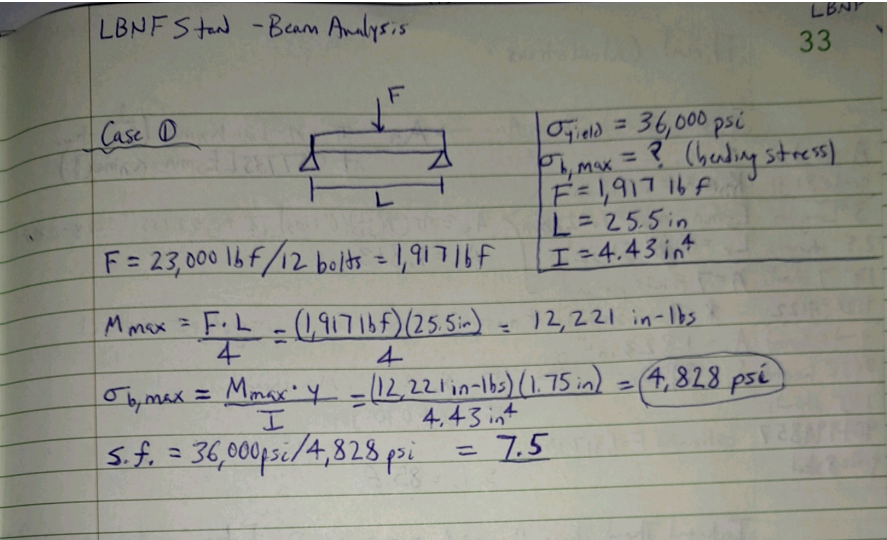 LBNF
LBNF Stand - Beam Analysis
33
F
Case ①
L
σyield = 36,000 psi
σb,max = ? (bending stress)
F = 1,917 lbf
L = 25.5 in
I = 4.43 in⁴
F = 23,000 lbf/12 bolts = 1,917 lbf
Mmax = F·L/4 = (1,917 lbf)(25.5in)/4 = 12,221 in-lbs
σb,max = Mmax·y/I = (12,221 in-lbs)(1.75 in)/4.43 in⁴ = 4,828 psi
S.f. = 36,000psi/4,828 psi = 7.5